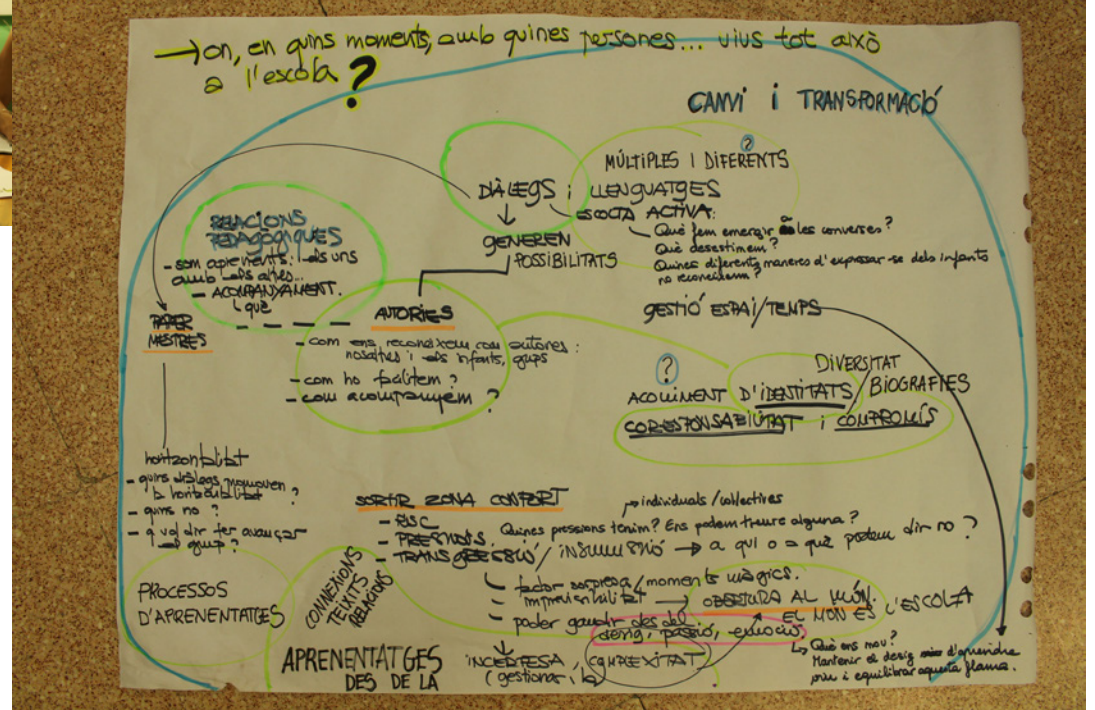 → on, en quins moments, amb quines persones... vius tot això
a l'escola ?
CANVI i TRANSFORMACIÓ
MÚLTIPLES I DIFERENTS
?
DIÀLEGS i LLENGUATGES
ESCOLTA ACTIVA:
Què fem emergir les converses?
Què desestimem?
Quines diferents maneres d'expressar-se dels infants
no reconeixem?
GENEREN
POSSIBILITATS
RELACIONS
PEDAGÒGIQUES
- som aprenents: els uns
amb els altres...
- ACOMPANYAMENT.
què
PAPER
MESTRES
AUTORIES
- com ens reconeixem com autores:
nosaltres i els infants, grups
- com ho facilitem?
- com acompanyem?
GESTIÓ ESPAI/TEMPS
?
ACOLLIMENT D'IDENTITATS / DIVERSITAT
BIOGRAFIES
CORESPONSABILITAT i COMPROMÍS
horitzontalitat
- quins diàlegs promouen
la horitzontalitat?
- quins no?
- q vol dir fer avançar
el grup?
PROCESSOS
D'APRENENTATGES
SORTIR ZONA CONFORT
- RISC
- TRANSGRESSIÓ / insumissió → a qui o a què podem dir no?
individuals / col·lectives
Quines pressions tenim? Ens podem treure alguna?
- factor sorpresa / moments màgics.
- imprevisibilitat → OBERTURA AL MÓN.
EL MÓN ÉS L'ESCOLA
- poder gaudir des del
desig, passió, emoció
Què ens mou?
Mantenir el desig d'aprendre
i equilibrar aquesta flama.
CONNEXIONS
TEIXITS
RELACIONS
APRENENTATGES
DES DE LA
INCERTESA,
(gestionar-la)
COMPLEXITAT